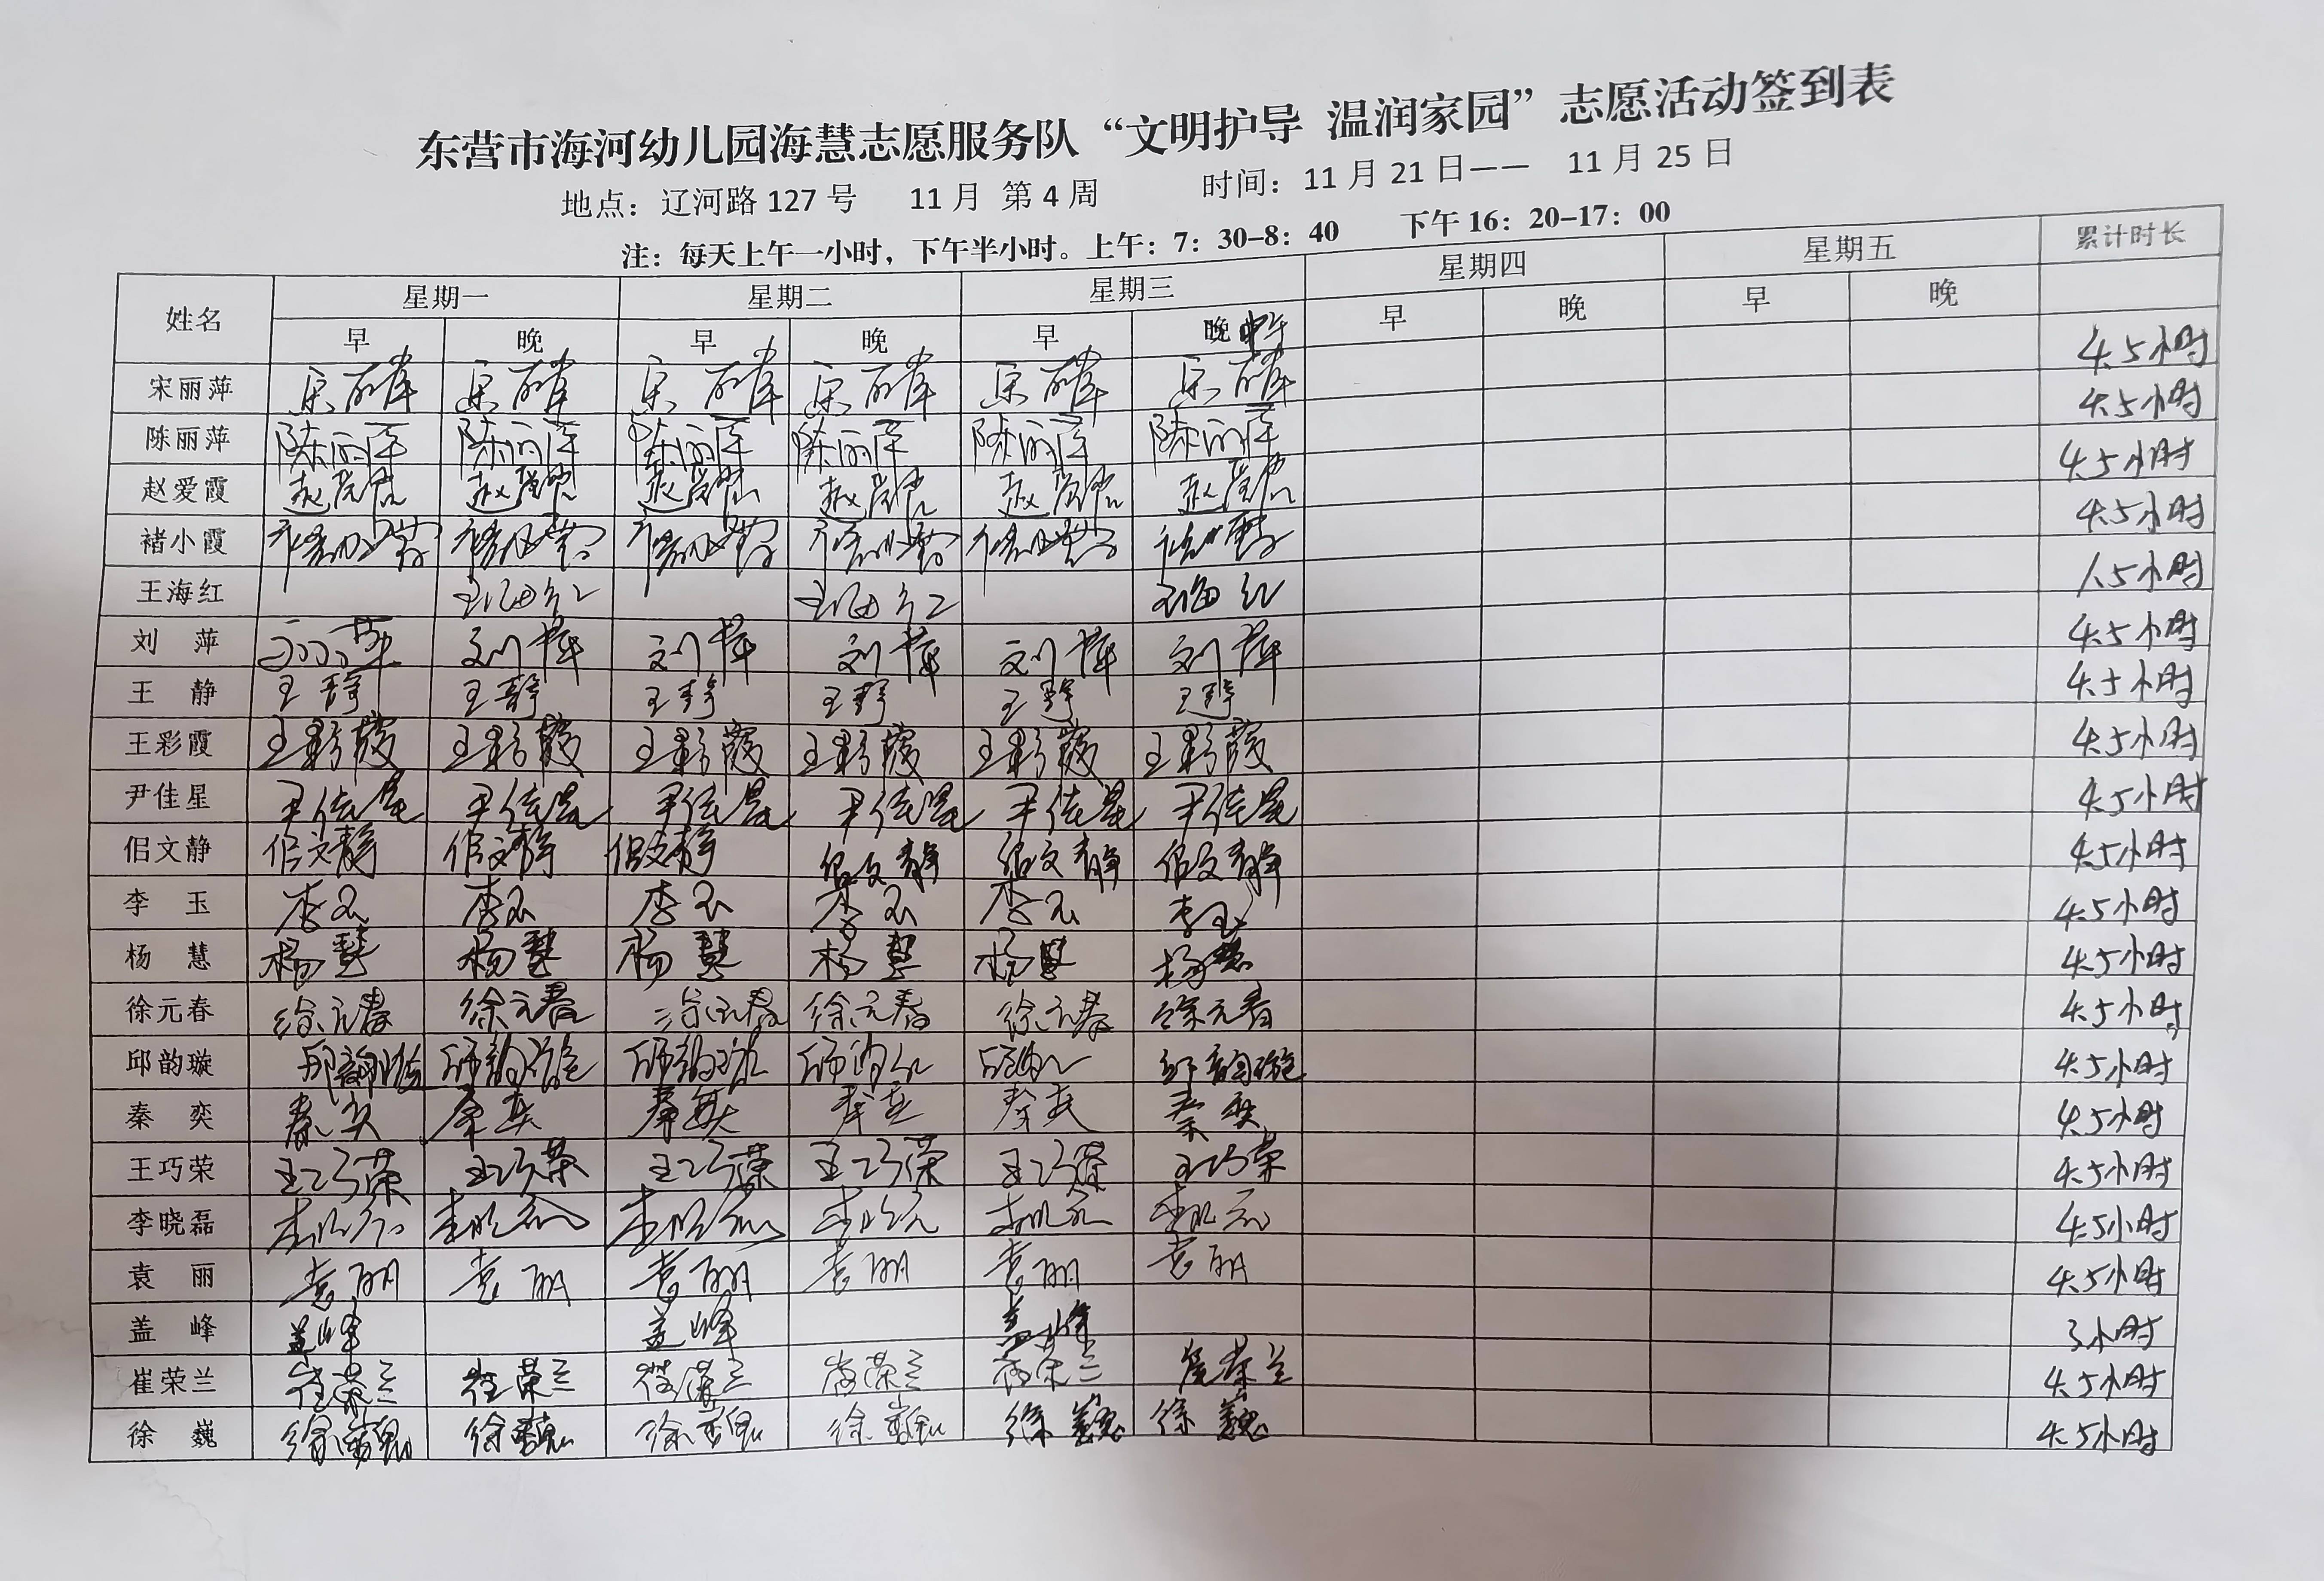 东营市海河幼儿园海慧志愿服务队“文明护导 温润家园”志愿活动签到表
地点：辽河路 127 号 11 月 第 4 周 时间：11 月 21 日—— 11 月 25 日
注：每天上午一小时，下午半小时。上午：7：30-8：40 下午 16：20-17：00
姓名 星期一 星期二 星期三 星期四 星期五 累计时长
早 晚 早 晚 早 晚 中午 早 晚 早 晚
宋丽萍 宋丽萍 宋丽萍 宋丽萍 宋丽萍 宋丽萍 宋丽萍 4.5小时
陈丽萍 陈丽萍 陈丽萍 陈丽萍 陈丽萍 陈丽萍 陈丽萍 4.5小时
赵爱霞 赵爱霞 赵爱霞 赵爱霞 赵爱霞 赵爱霞 赵爱霞 4.5小时
褚小霞 褚小霞 褚小霞 褚小霞 褚小霞 褚小霞 褚小霞 4.5小时
王海红 王海红 王海红 王海红 1.5小时
刘 萍 刘萍 刘萍 刘萍 刘萍 刘萍 刘萍 4.5小时
王 静 王静 王静 王静 王静 王静 王静 4.5小时
王彩霞 王彩霞 王彩霞 王彩霞 王彩霞 王彩霞 王彩霞 4.5小时
尹佳星 尹佳星 尹佳星 尹佳星 尹佳星 尹佳星 尹佳星 4.5小时
佀文静 佀文静 佀文静 佀文静 佀文静 佀文静 佀文静 4.5小时
李 玉 李玉 李玉 李玉 李玉 李玉 李玉 4.5小时
杨 慧 杨慧 杨慧 杨慧 杨慧 杨慧 杨慧 4.5小时
徐元春 徐元春 徐元春 徐元春 徐元春 徐元春 徐元春 4.5小时
邱韵璇 邱韵璇 邱韵璇 邱韵璇 邱韵璇 邱韵璇 邱韵璇 4.5小时
秦 奕 秦奕 秦奕 秦奕 秦奕 秦奕 秦奕 4.5小时
王巧荣 王巧荣 王巧荣 王巧荣 王巧荣 王巧荣 王巧荣 4.5小时
李晓磊 李晓磊 李晓磊 李晓磊 李晓磊 李晓磊 李晓磊 4.5小时
袁 丽 袁丽 袁丽 袁丽 袁丽 袁丽 袁丽 4.5小时
盖 峰 盖峰 盖峰 盖峰 3小时
崔荣兰 崔荣兰 崔荣兰 崔荣兰 崔荣兰 崔荣兰 崔荣兰 4.5小时
徐 巍 徐巍 徐巍 徐巍 徐巍 徐巍 徐巍 4.5小时